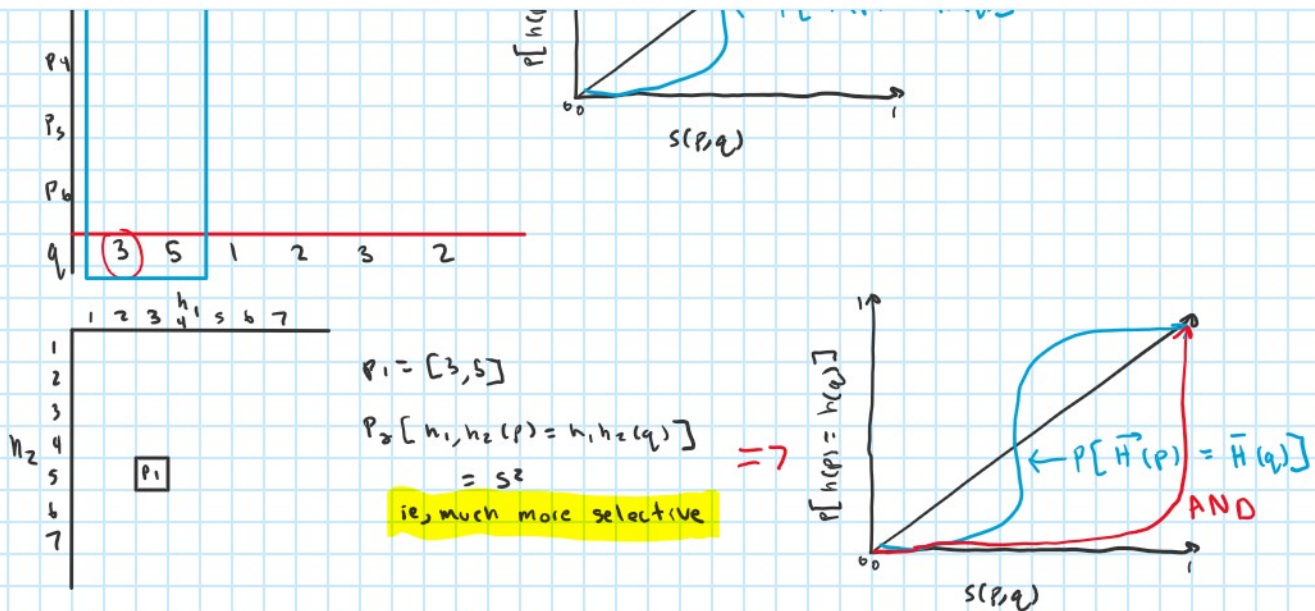 P4
P5
P6
q 3 5 1 2 3 2
P[h(
0 0
1
S(p,q)
h1
1 2 3 4 5 6 7
h2
1
2
3
4
5
6
7
P1
P1 = [3,5]
Pr[h1,h2(p) = h1h2(q)]
= s²
ie, much more selective
=>
1
P[h(p) = h(q)]
← P[H⃗(p) = H̄(q)]
AND
0 0
1
S(p,q)